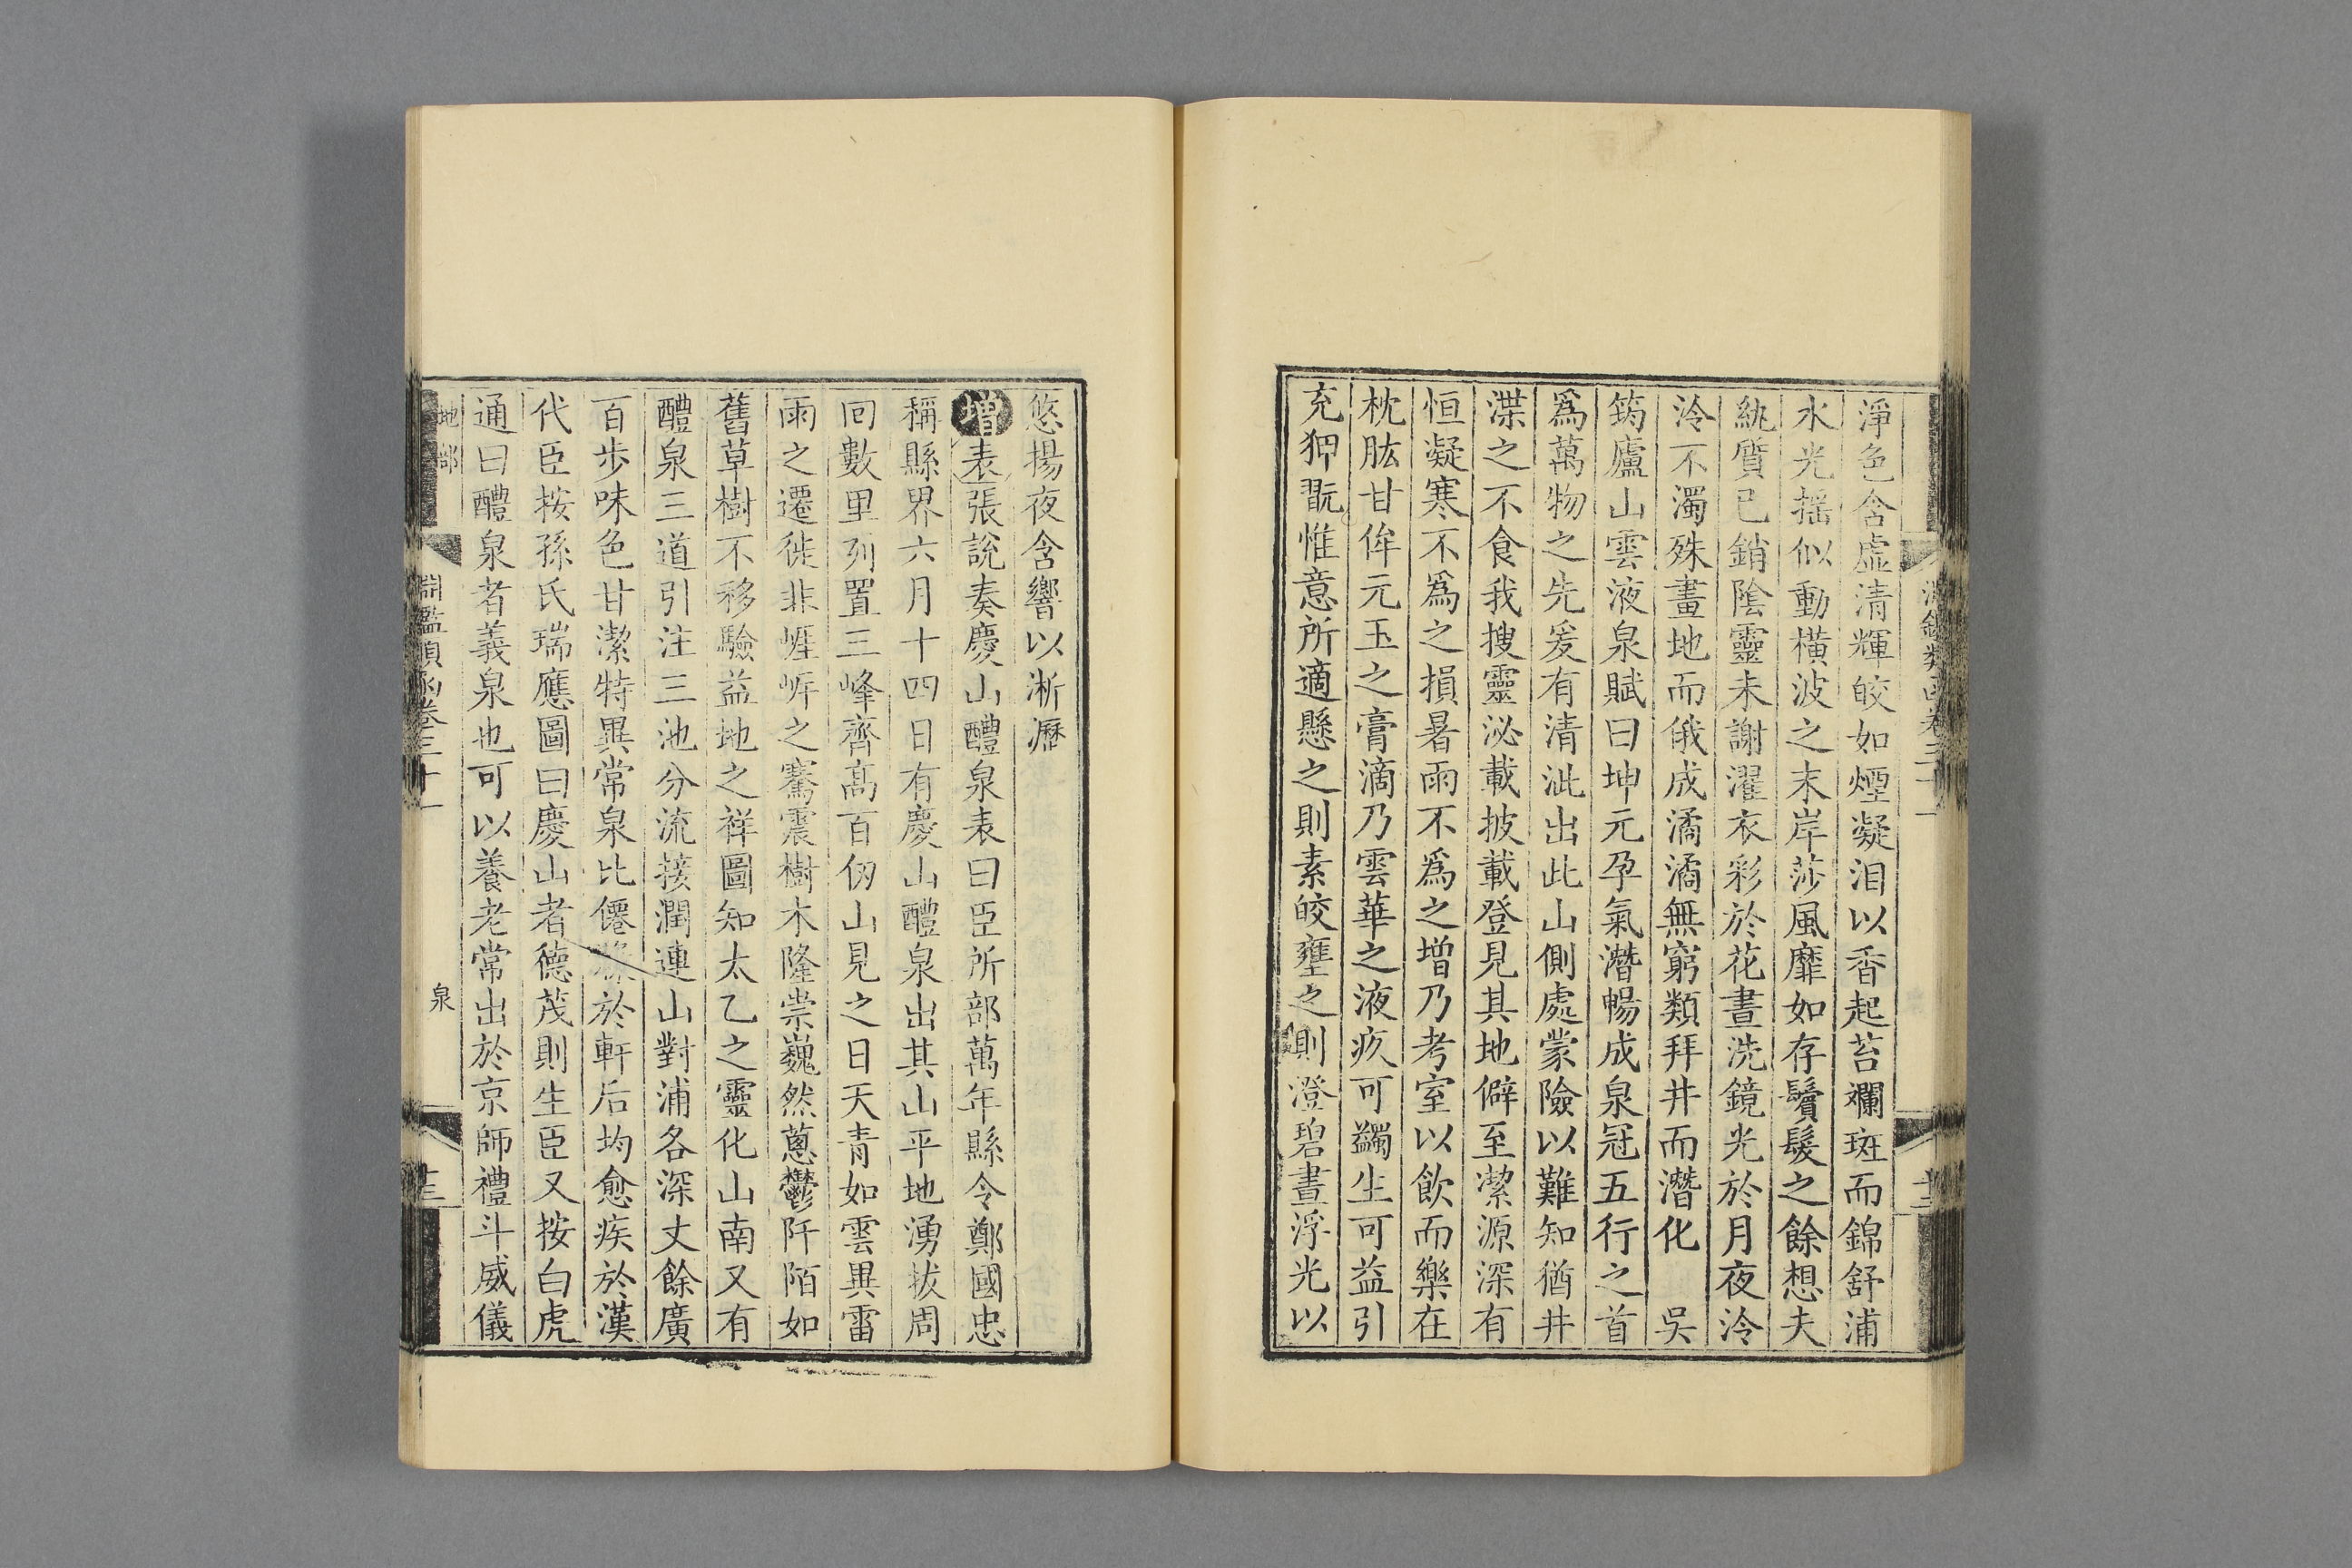 淨色含虛清輝皎如煙凝泪以香起苔斕斑而錦舒浦
水光搖似動橫波之末岸莎風靡如存鬢髮之餘想夫
紈質已銷陰靈未謝濯衣彩於花晝洗鏡光於月夜泠
泠不濁殊畫地而俄成潏潏無窮類拜井而潛化 吳
筠廬山雲液泉賦曰坤元孕氣潛暢成泉冠五行之首
爲萬物之先爰有清泚出此山側處蒙險以難知猶井
渫之不食我搜靈泌載披載登見其地僻至潔源深有
恒凝寒不爲之損暑雨不爲之增乃考室以飲而樂在
枕肱甘侔元玉之膏滴乃雲華之液疚可蠲生可益引
充狎翫惟意所適懸之則素皎壅之則澄碧晝浮光以
悠揚夜含響以淅瀝
增表張說奏慶山醴泉表曰臣所部萬年縣令鄭國忠
稱縣界六月十四日有慶山醴泉出其山平地湧拔周
回數里列置三峰齊高百仞山見之日天青如雲異雷
雨之遷徙非崕岍之騫震樹木隆崇巍然蔥鬱阡陌如
舊草樹不移驗益地之祥圖知太乙之靈化山南又有
醴泉三道引注三池分流接潤連山對浦各深丈餘廣
百步味色甘潔特異常泉比僊漿於軒后均愈疾於漢
代臣按孫氏瑞應圖曰慶山者德茂則生臣又按白虎
通曰醴泉者義泉也可以養老常出於京師禮斗威儀
地部 淵鑑類函卷三十一 泉